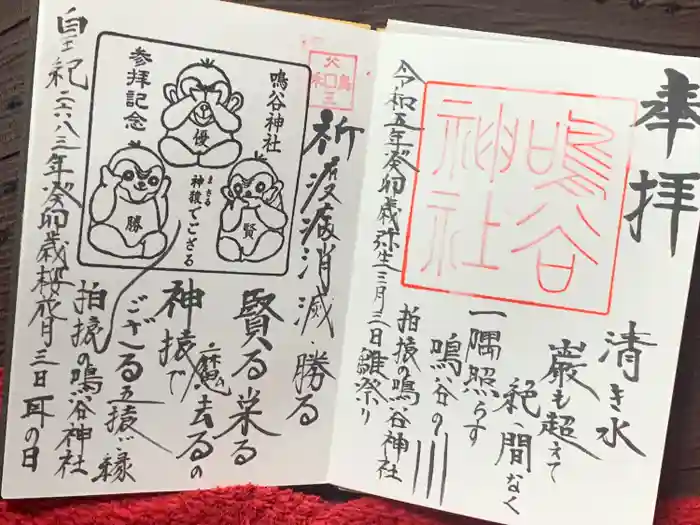 奉拝
鳴谷
神社
清き水
巌も超えて
絶間なく
一隅照らす
鳴谷の川
拍猿の鳴谷神社
令和五年癸卯歳弥生三月三日雛祭り
祈渡疫消滅・勝る
賢る栄る
魔去るの
神猿で
ござる五猿ご縁
拍猿の鳴谷神社
皇紀二六八三年癸卯歳桜花月三日耳の日
鳴谷神社
参拝記念
優
勝
賢
まさる
神猿でござる